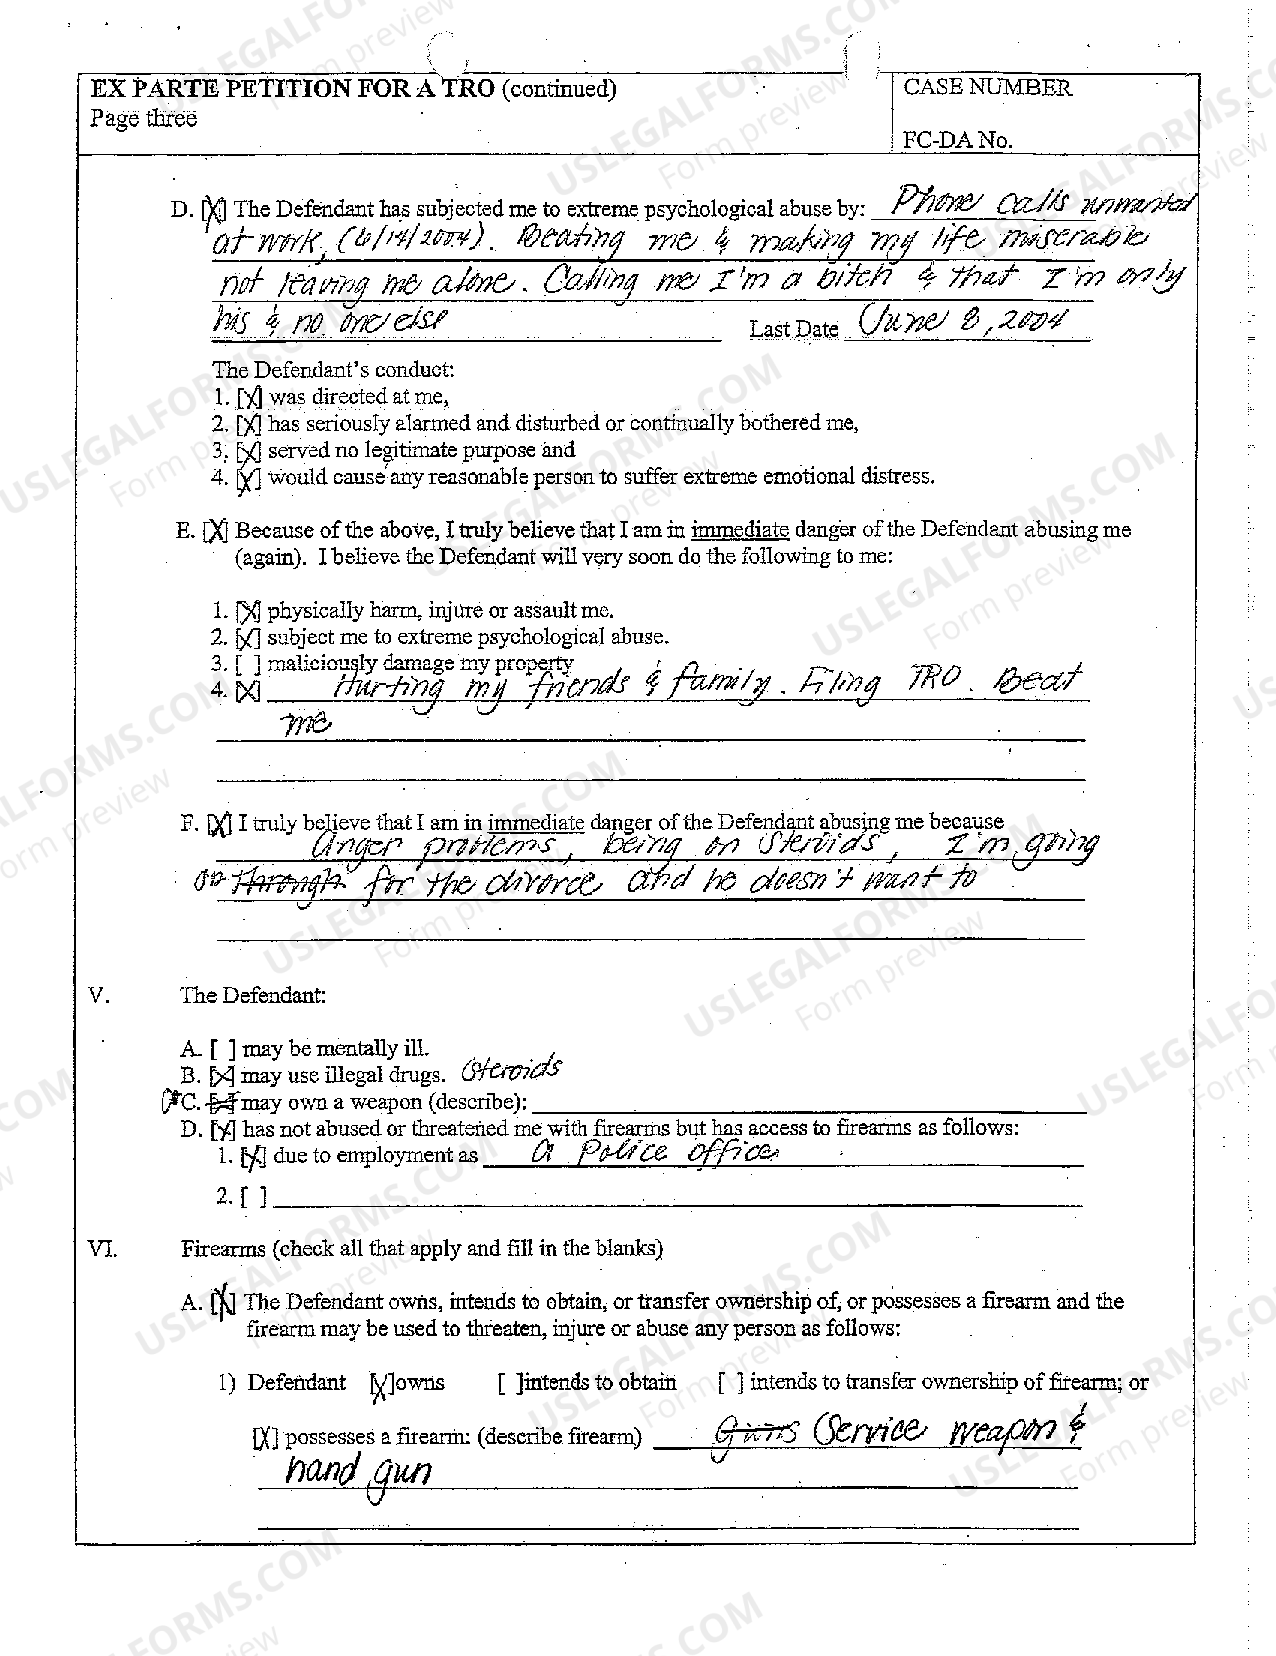 EX PARTE PETITION FOR A TRO (continued)
Page three
CASE NUMBER
FC-DA No.
D. [X] The Defendant has subjected me to extreme psychological abuse by: Phone calls unwanted
at work, (6/14/2004). Beating me & making my life miserable
not leaving me alone. Calling me I'm a bitch & that I'm only
his & no one else Last Date June 8, 2004
The Defendant's conduct:
1. [X] was directed at me,
2. [X] has seriously alarmed and disturbed or continually bothered me,
3. [X] served no legitimate purpose and
4. [X] would cause any reasonable person to suffer extreme emotional distress.
E. [X] Because of the above, I truly believe that I am in immediate danger of the Defendant abusing me
(again). I believe the Defendant will very soon do the following to me:
1. [X] physically harm, injure or assault me.
2. [X] subject me to extreme psychological abuse.
3. [ ] maliciously damage my property
4. [X] Hurting my friends & family. Filing TRO. Beat
me
F. [X] I truly believe that I am in immediate danger of the Defendant abusing me because
anger problems, being on Steroids, I'm going
through for the divorce and he doesn't want to
V. The Defendant:
A. [ ] may be mentally ill.
B. [X] may use illegal drugs. Steroids
C. [X] may own a weapon (describe):
D. [X] has not abused or threatened me with firearms but has access to firearms as follows:
1. [X] due to employment as a Police office
2. [ ]
VI. Firearms (check all that apply and fill in the blanks)
A. [X] The Defendant owns, intends to obtain, or transfer ownership of, or possesses a firearm and the
firearm may be used to threaten, injure or abuse any person as follows:
1) Defendant [X]owns [ ]intends to obtain [ ] intends to transfer ownership of firearm; or
[X] possesses a firearm: (describe firearm) Guns Service weapon &
hand gun
USLEGALFORMS.COM
Form preview